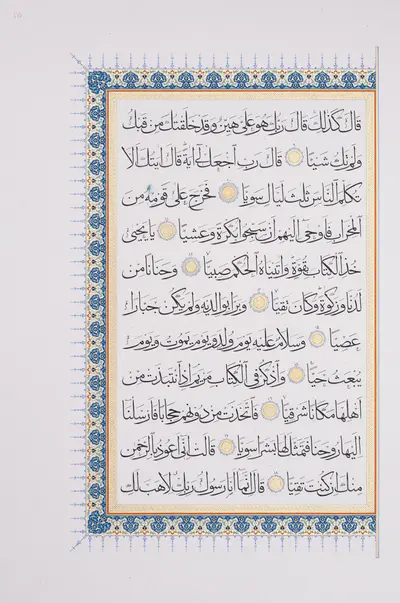 قال كذلك قال ربك هو علي هين وقد خلقتك من قبل
ولم تك شيئا قال رب اجعل لي آية قال آيتك ألا
تكلم الناس ثلث ليال سويا فخرج على قومه من
المحراب فأوحى إليهم أن سبحوا بكرة وعشيا يا يحيى
خذ الكتاب بقوة وآتيناه الحكم صبيا وحنانا من
لدنا وزكوة وكان تقيا وبرا بوالديه ولم يكن جبارا
عصيا وسلام عليه يوم ولد ويوم يموت ويوم
يبعث حيا واذكر في الكتاب مريم إذ انتبذت من
أهلها مكانا شرقيا فاتخذت من دونهم حجابا فأرسلنا
إليها روحنا فتمثل لها بشرا سويا قالت إني أعوذ بالرحمن
منك إن كنت تقيا قال إنما أنا رسول ربك لأهب لك